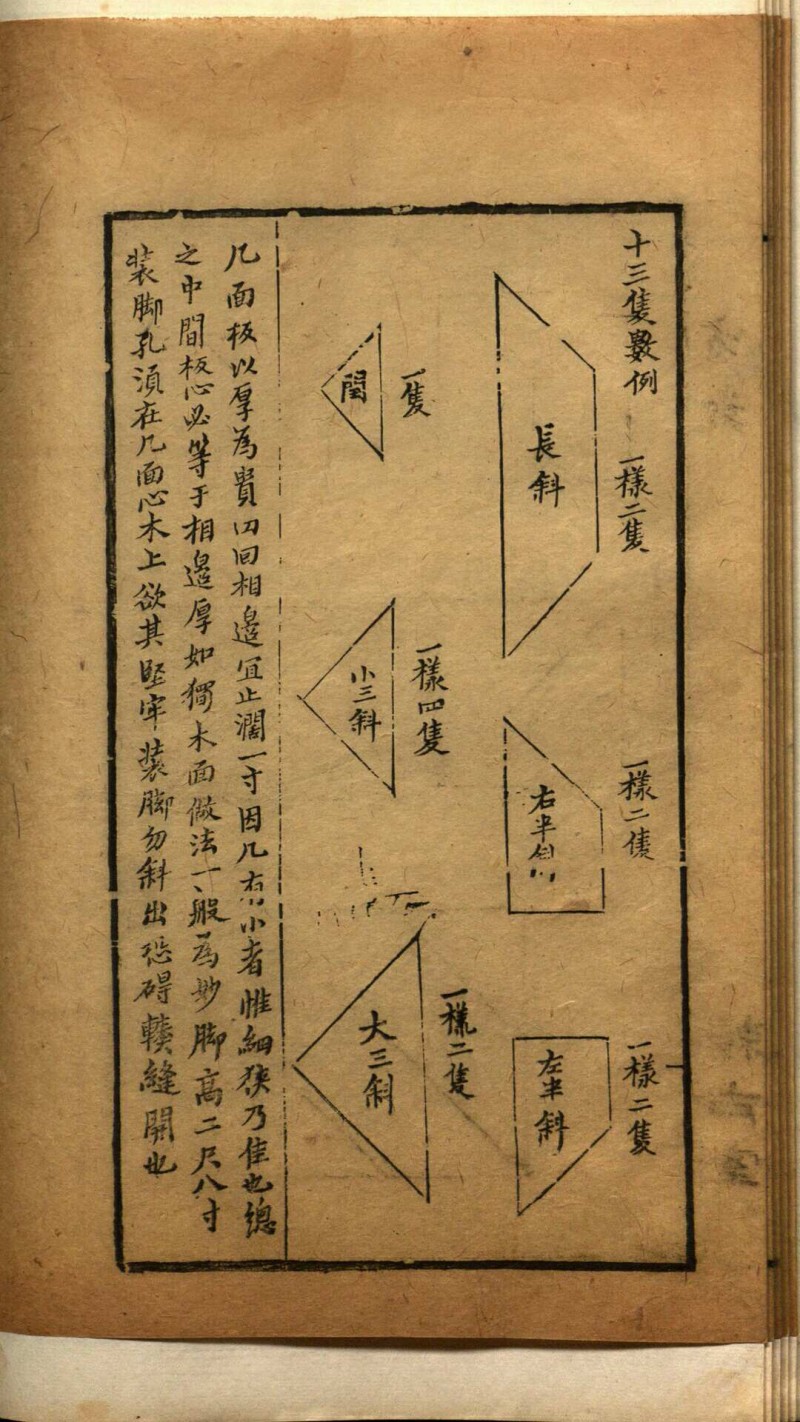 十三隻數例
一樣二隻
長斜
一樣二隻
右半斜
一樣二隻
左半斜
一隻
閏
一樣四隻
小三斜
一樣二隻
大三斜
几面板以厚為貴四回相邉宜止濶一寸因几有小者惟細狹乃佳也總
之中間板心必等于相邉厚如獨木面做法一般為妙脚高二尺八寸
装脚孔湏在几面心木上欲其堅牢装脚勿斜出恐碍轃縫開也